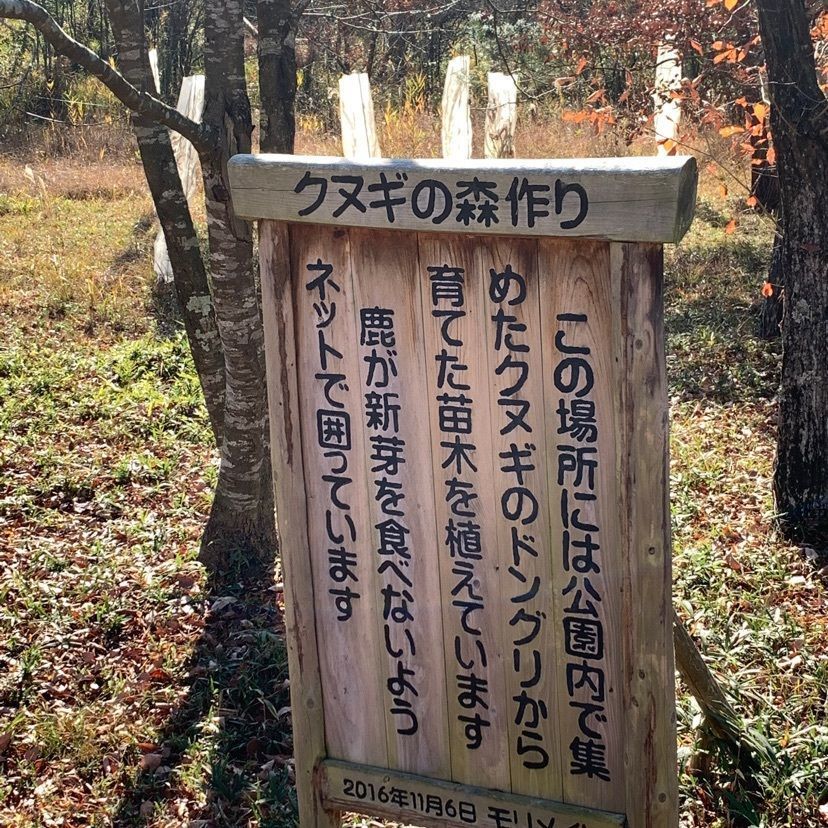 クヌギの森作り
この場所には公園内で集
めたクヌギのドングリから
育てた苗木を植えています
鹿が新芽を食べないよう
ネットで囲っています
2016年11月6日 モリメイ